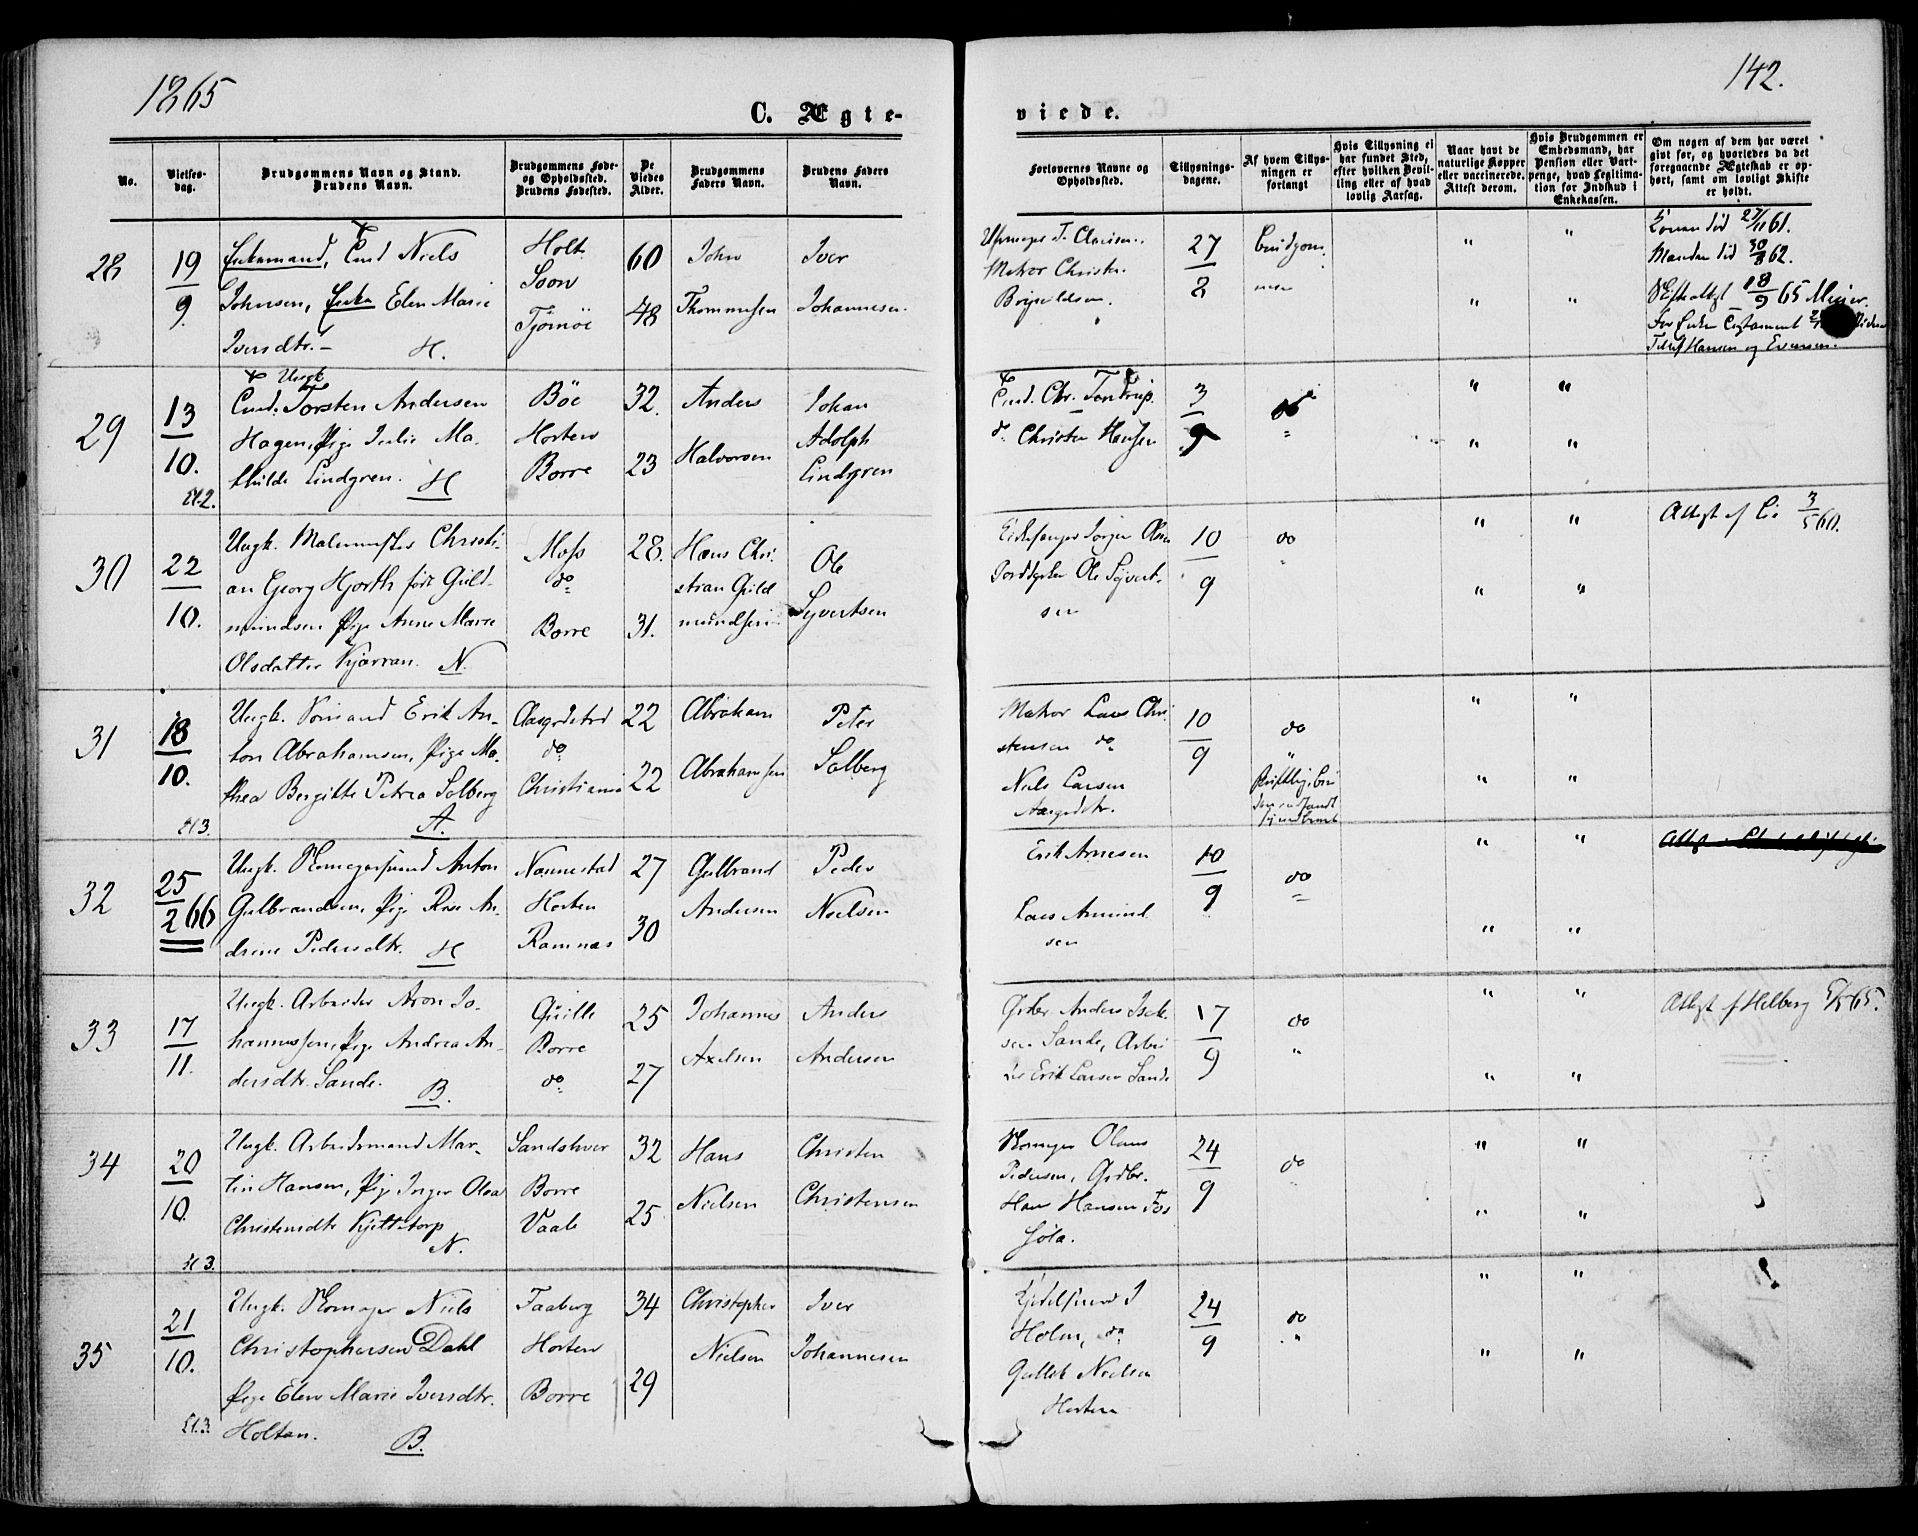 1865
142.
C. Ægte-
viede.
No.
Vielses-
dag.
Brudgommens Navn og Stand.
Brudens Navn.
Brudgommens Føde-
og Opholdssted.
Brudens Fødested.
De
Viedes
Alder.
Brudgommens
Faders Navn.
Brudens Faders
Navn.
Forlovernes Navne og
Opholdssted.
Tillysnings-
dagene.
Af hvem Tillys-
ningen er
forlangt
Hvis Tillysning ei
har fundet Sted,
efter hvilken Bevil-
ling eller af hvad
lovlig Aarsag.
Naar havt de
naturlige Kopper
eller vaccinerede.
Attest derom.
Hvis Brudgommen er
Embedsmand, har
Pension eller Vart-
penge, hvad Legitima-
tion for Indskud i
Enkekassen.
Om nogen af dem har været
givt før, og hvorledes da det
foregaaende Ægteskab er op-
hørt, samt om lovligt Skifte
er holdt.
28
19
9.
Enkemand, Niels
Johnsen, Enke Elen Marie
Iversdtr. –
H.
Holt
Soon
Tjømöe
60
48
John
Thommesen
Iver
Johannesen.
Matros Christen
27
8
Brudgom-
men
" "
" "
Konen død 27/11 61.
Manden død 30/8 62.
18/9 65
Hansen og Evensen.
29
13
10.
Ungk.
Torsten Andersen
Hagen, Pige Julie Ma-
thilde Lindgren. H
Böe
Horten
Borre
32.
23
Anders
Halvorsen
Johan
Adolph
Lindgren
Chr. Tentrup.
do Christen Hansen
3
9
do
"
" "
" "
30
22
10.
Ungk. Malermester Christi-
an Georg Hjorth født Guld-
mundsen Pige Anne Marie
Olsdatter Kjærran. N.
Moss
do
Borre
28.
31.
Hans Chri-
stian Guld
mundsen
Ole
Syvertsen
Jørgen Olsen
Ole Syvert-
sen
10
9
do
" "
" "
Attest af Lie 3/5 60.
31
18
10.
Ungk. Sømand Erik An-
ton Abrahamsen, Pige Ma-
thea Bergitte Petrea Solberg
A.
Aasgrdstrd
do
Christiania
22
22
Abraham
Abrahamsen
Peter
Solberg
Matros Lars Chri-
stensen do
Niels Larsen
Aasgrdstr.
10
9
do
"
" "
" "
32
25
2 66
Ungk. Anton
Gulbrandsen, Pige Rose An-
drine Pedersdtr. H
Nannestad
Horten
Ramnæs
27
30
Gulbrand
Andersen
Peder
Nielsen
Erik Arnesen
Lars Amund-
sen
10
9
do
"
" "
" "
33
17
11.
Ungk. Arbeider Aron Jo-
hannessen, Pige Andrea An-
dersdtr. Sande. B.
Qville
Borre
do
25
27
Johannes
Axelsen
Anders
Andersen
Grdbr Anders Isak-
sen Sande, Arbei-
der Erik Larsen Sande
17
9
do
"
" "
" "
Attest af Helberg 5/5 65.
34
20
10.
Ungk. Arbeidsmand Mar-
tin Hansen, Pige Inger Olea
Christensdtr
N.
Sandshver
Borre
Vaale
32
25
Hans
Nielsen
Christen
Christensen
Skomager Olaus
Pedersen, Grdbr.
Hans Hansen
24
9
do
" "
" "
35
21
10.
Ungk. Skomager Niels
Christophersen Dahl
Pige Elen Marie Iversdtr.
Holtan. B.
Faaberg
Horten
Borre
34
29
Christopher
Nielsen
Iver
Johannesen
Holm, do
Gullek Nielsen
Horten
24
9
do
"
" "
" "